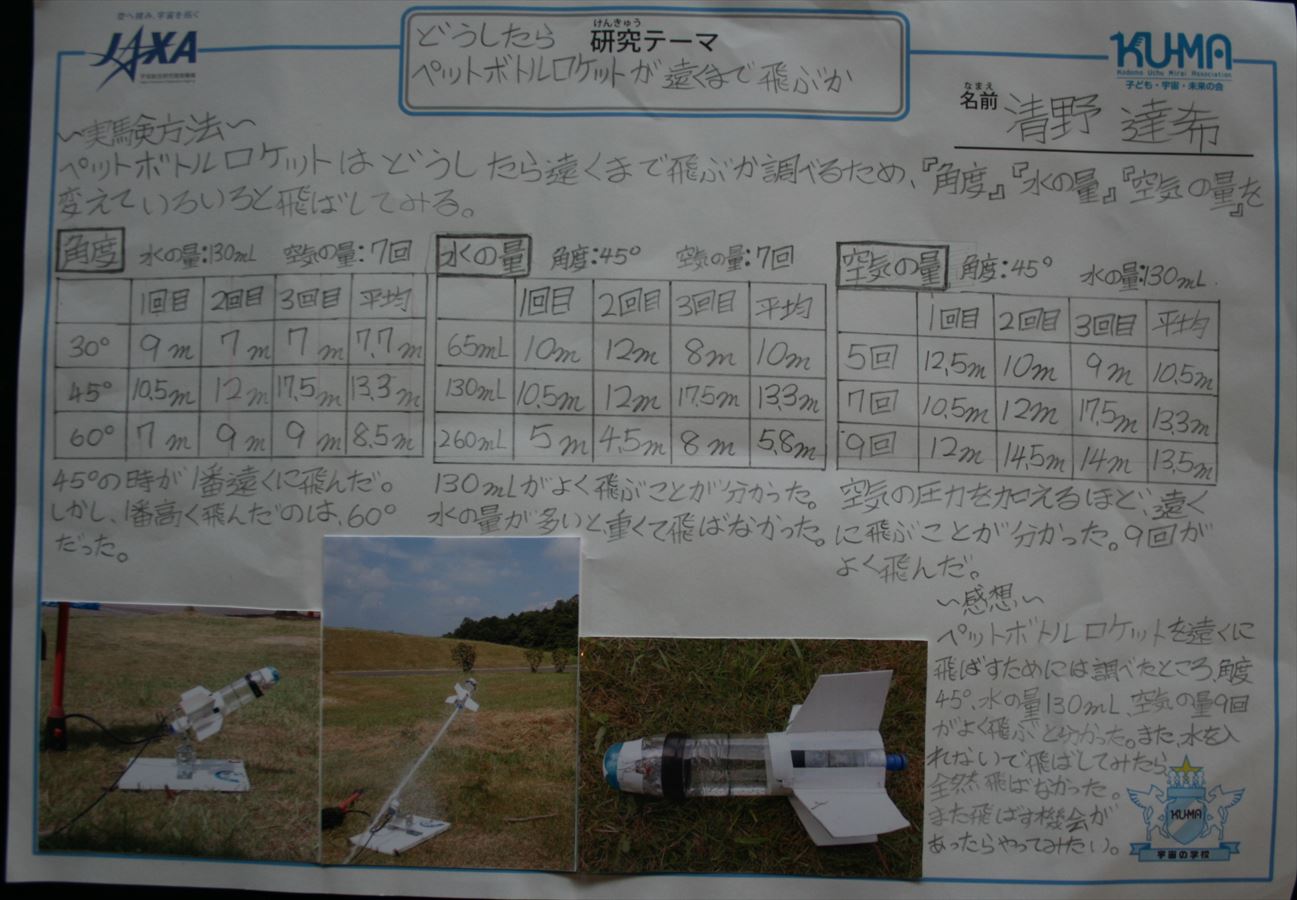 空へ挑み、宇宙を拓く
JAXA
どうしたら
けんきゅう
研究テーマ
ペットボトルロケットが遠くまで飛ぶか
KUMA
Kodomo Uchu Mirai Association
子ども・宇宙・未来の会
なまえ
名前 清野 達希
〜実験方法〜
ペットボトルロケットはどうしたら遠くまで飛ぶか調べるため、『角度』『水の量』『空気の量』を
変えていろいろと飛ばしてみる。
角度 水の量:130mL 空気の量:7回
1回目 2回目 3回目 平均
30° 9m 7m 7m 7.7m
45° 10.5m 12m 17.5m 13.3m
60° 7m 9m 9m 8.5m
45°の時が1番遠くに飛んだ。
しかし、1番高く飛んだのは、60°
だった。
水の量 角度:45° 空気の量:7回
1回目 2回目 3回目 平均
65mL 10m 12m 8m 10m
130mL 10.5m 12m 17.5m 13.3m
260mL 5m 4.5m 8m 5.8m
130mLがよく飛ぶことが分かった。
水の量が多いと、重くて飛ばなかった。
空気の量 角度:45° 水の量:130mL
1回目 2回目 3回目 平均
5回 12.5m 10m 9m 10.5m
7回 10.5m 12m 17.5m 13.3m
9回 12m 14.5m 14m 13.5m
空気の圧力を加えるほど、遠く
に飛ぶことが分かった。9回が
よく飛んだ。
〜感想〜
ペットボトルロケットを遠くに
飛ばすためには調べたところ、角度
45°、水の量130mL、空気の量9回
がよく飛ぶと分かった。また、水を入
れないで飛ばしてみたら、
全然飛ばなかった。
また飛ばす機会が
あったらやってみたい。
KUMA
宇宙の学校